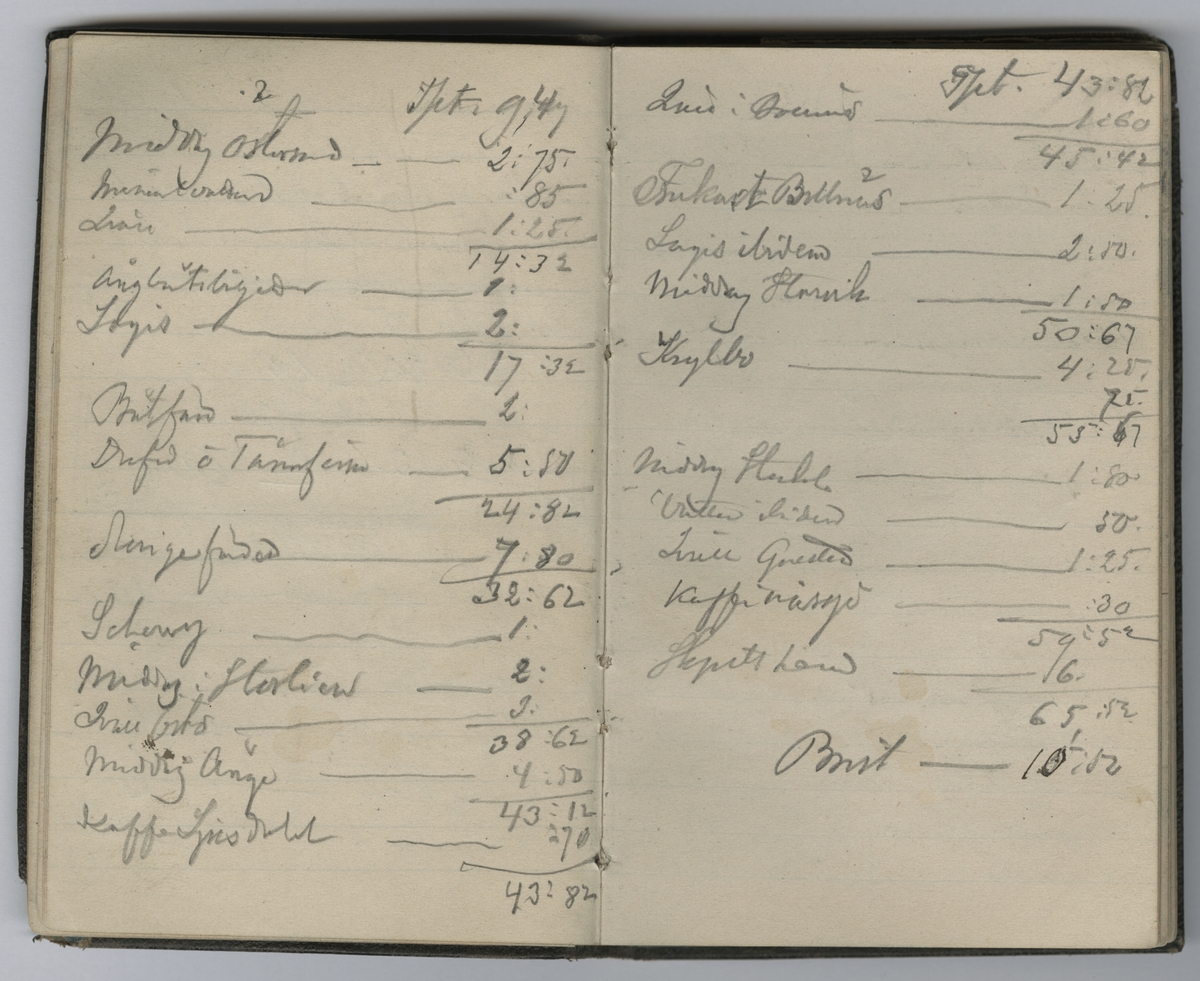 2
Tpt. 9,47
Middag Östersund — — 2:75.
Mineralvatten — :85
Qväll — 1:25.
14:32
Ångbåtsbiljetter — 1:
Logis — 2:
17:32
Båtfärd — 2:
Dufed o Tännforsen — 5:50
24:82
Norigefärden — 7:80
32:62
Schewy — 1:
Middag i Storlien — 2:
Qväll Östd — 3:
38:62
Middag Ånge — 4:50
43:12
Kaffe Ljusdahl — :70
43:82
Tpt. 43:82
Qväll i Bollnäs — 1:60
45:42
Frukost Bollnäs 2 — 1:25.
Logis ibidem — 2:50.
Middag Storvik — 1:50
50:67
Krylbo — 4:25.
75.
55:67
Middag Stockh. — 1:80
Vatten ibidem — 50.
Qväll Gnesta — 1:25.
Kaffe Nässjö — :30
59:52
Skjuts Lund — 6.
65:52
Brist — 15:52